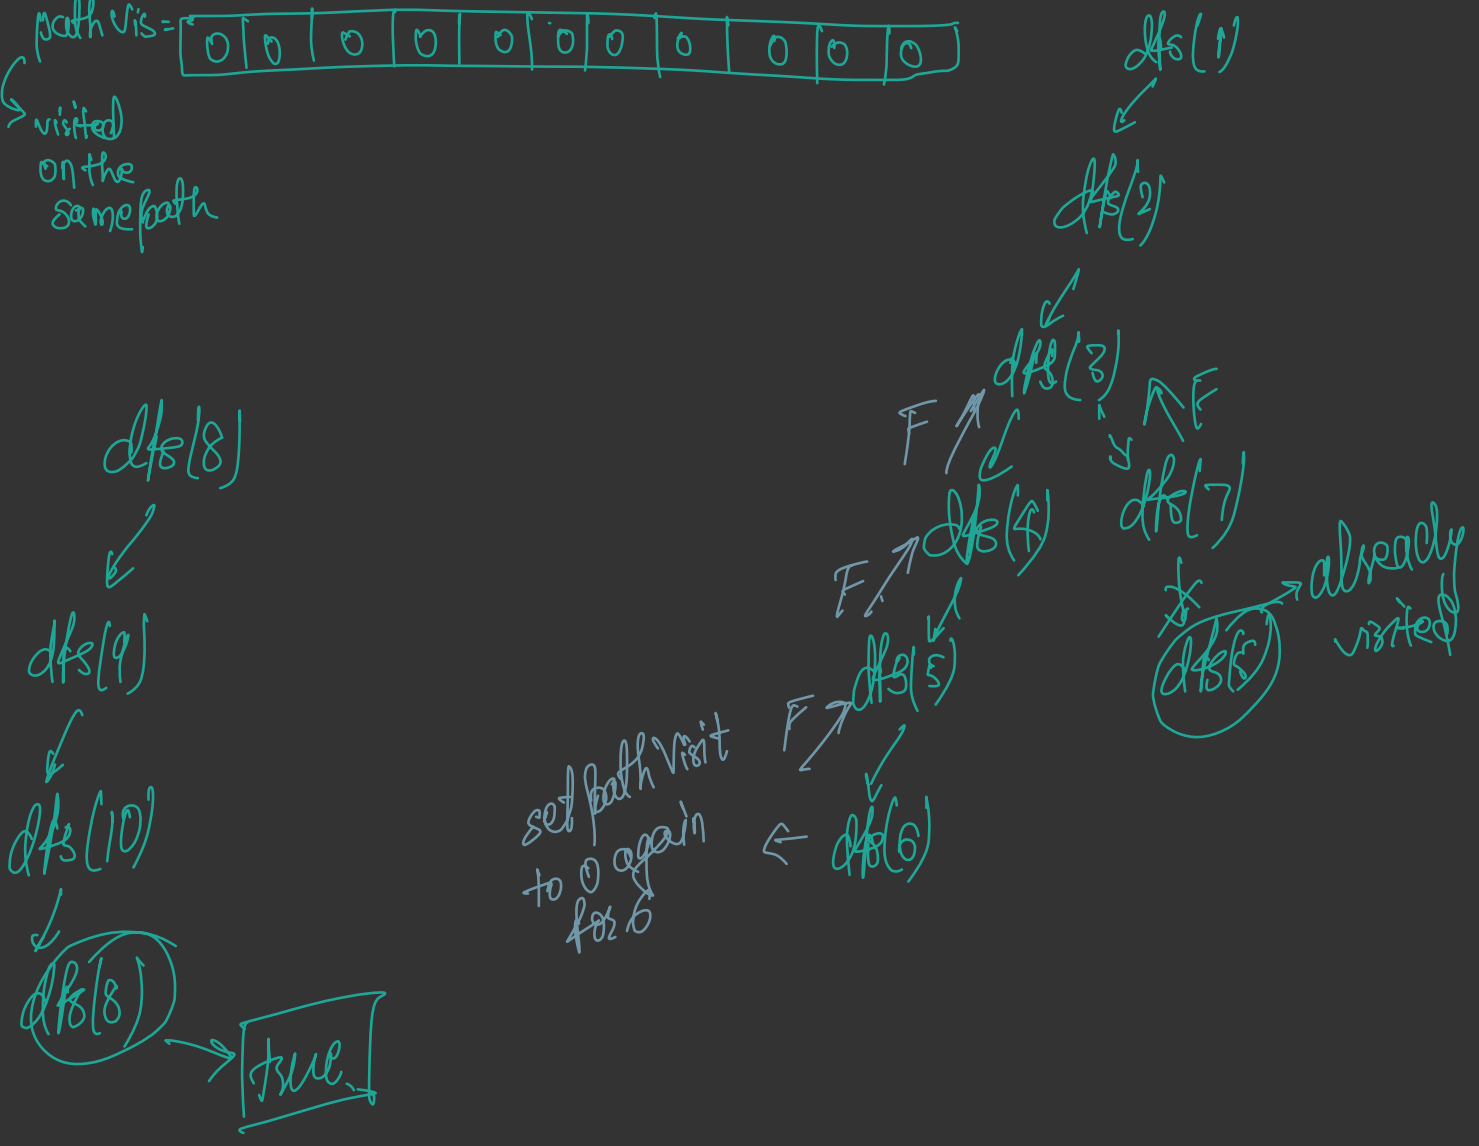 pathVis = 0 0 0 0 0 0 0 0 0 0 0
visited
on the
same path
dfs(1)
dfs(2)
dfs(3)
F
F
dfs(4)
dfs(7)
already
visited
F
dfs(5)
dfs(5)
F
dfs(6)
set path visit
to 0 again
for 6
dfs(8)
dfs(9)
dfs(10)
dfs(8)
true